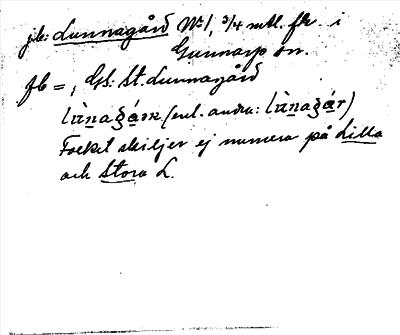 jb: Lunnagård Nr 1, 3/4 mtl. fr. i
Gunnarp sn.
fb = , Gl: St. Lunnagård
lùnagår (enl. andra: lùnagár)
Folket skiljer ej numera på Lilla
och Stora L.